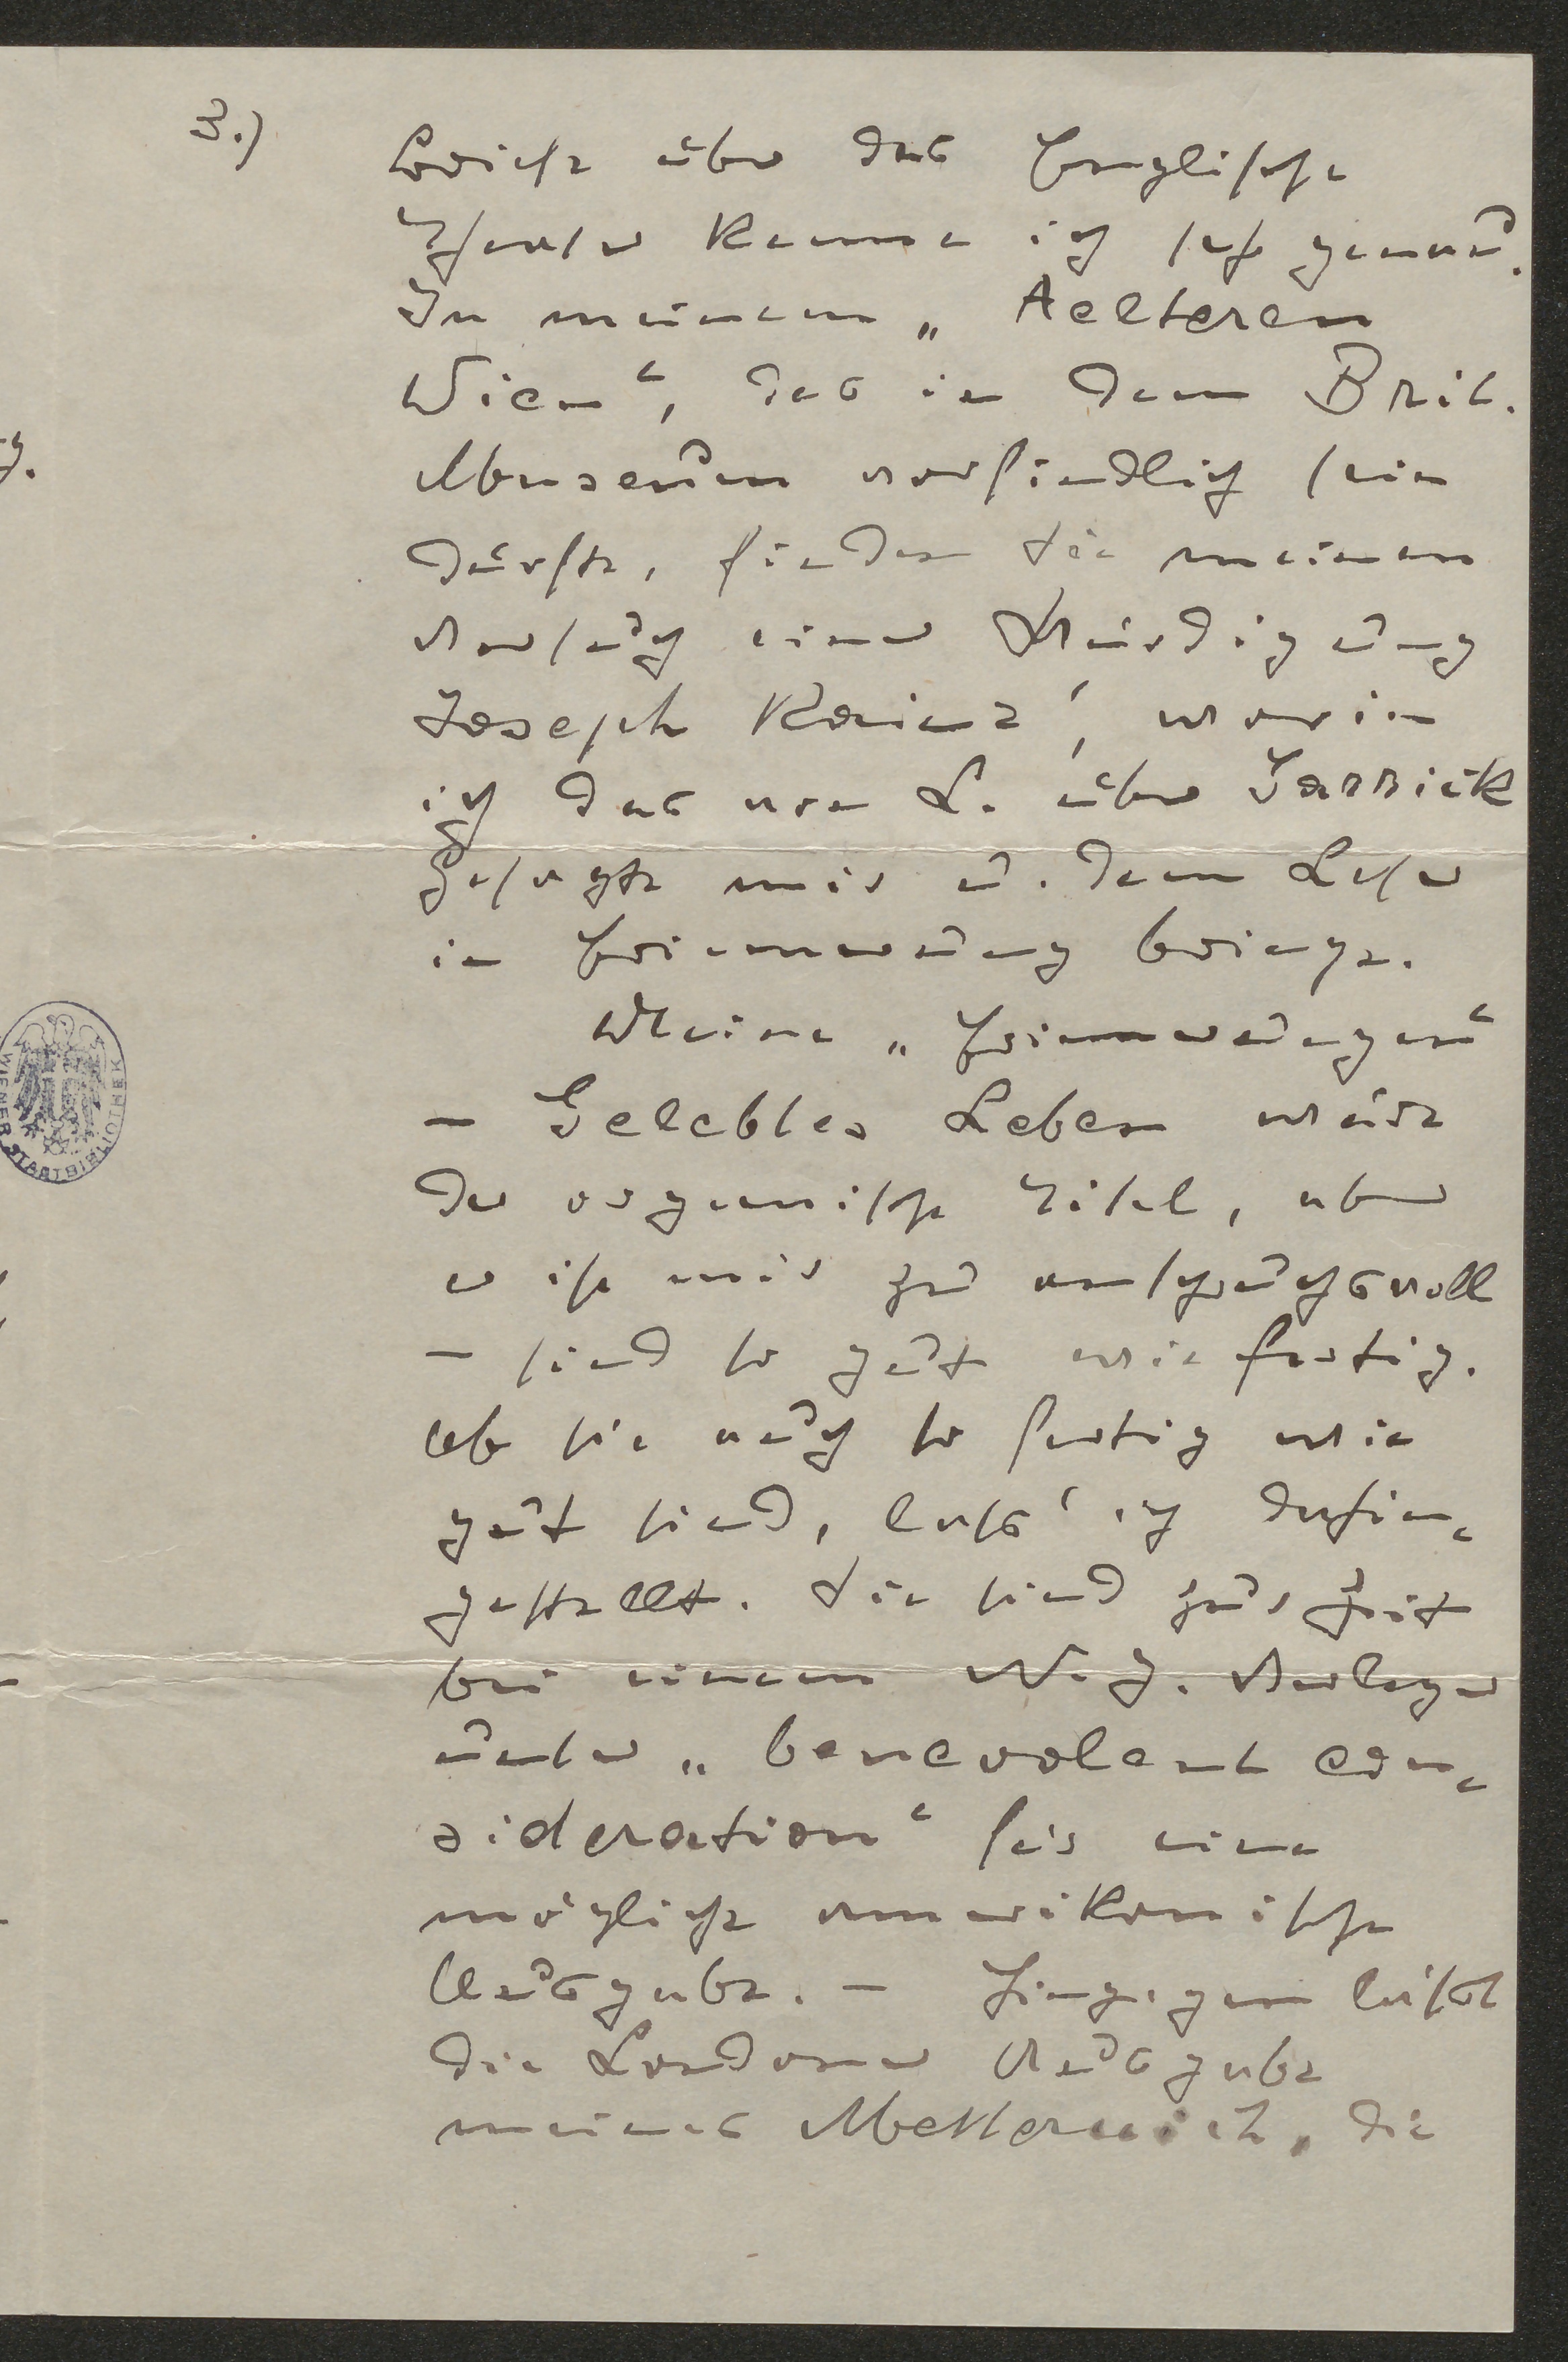 3.)
Bericht über das Englische
Theater kenne ich sehr genau.
In meinem „Aelteren
Wien“, das in dem Brit.
Museum vorfindlich sein
dürfte, finden Sie meinen
Versuch einer Würdigung
Joseph Kainz', worin
ich das von L. über Garrick
Gesagte mir u. dem Leser
in Erinnerung bringe.
Meine „Erinnerungen“
– Gelebtes Leben wäre
der organische Titel, aber
er ist mir zu anspruchsvoll
– sind so gut wie fertig.
Ob sie auch so fertig wie
gut sind, lass' ich dahin-
gestellt. Sie sind zur Zeit
bei einem N.Y. Verleger
unter „benevolent con-
sideration“ für eine
mögliche amerikanische
Ausgabe. – Hingegen läßt
die Londoner Ausgabe
meines Metternich, die
WIENER STADTBIBLIOTHEK